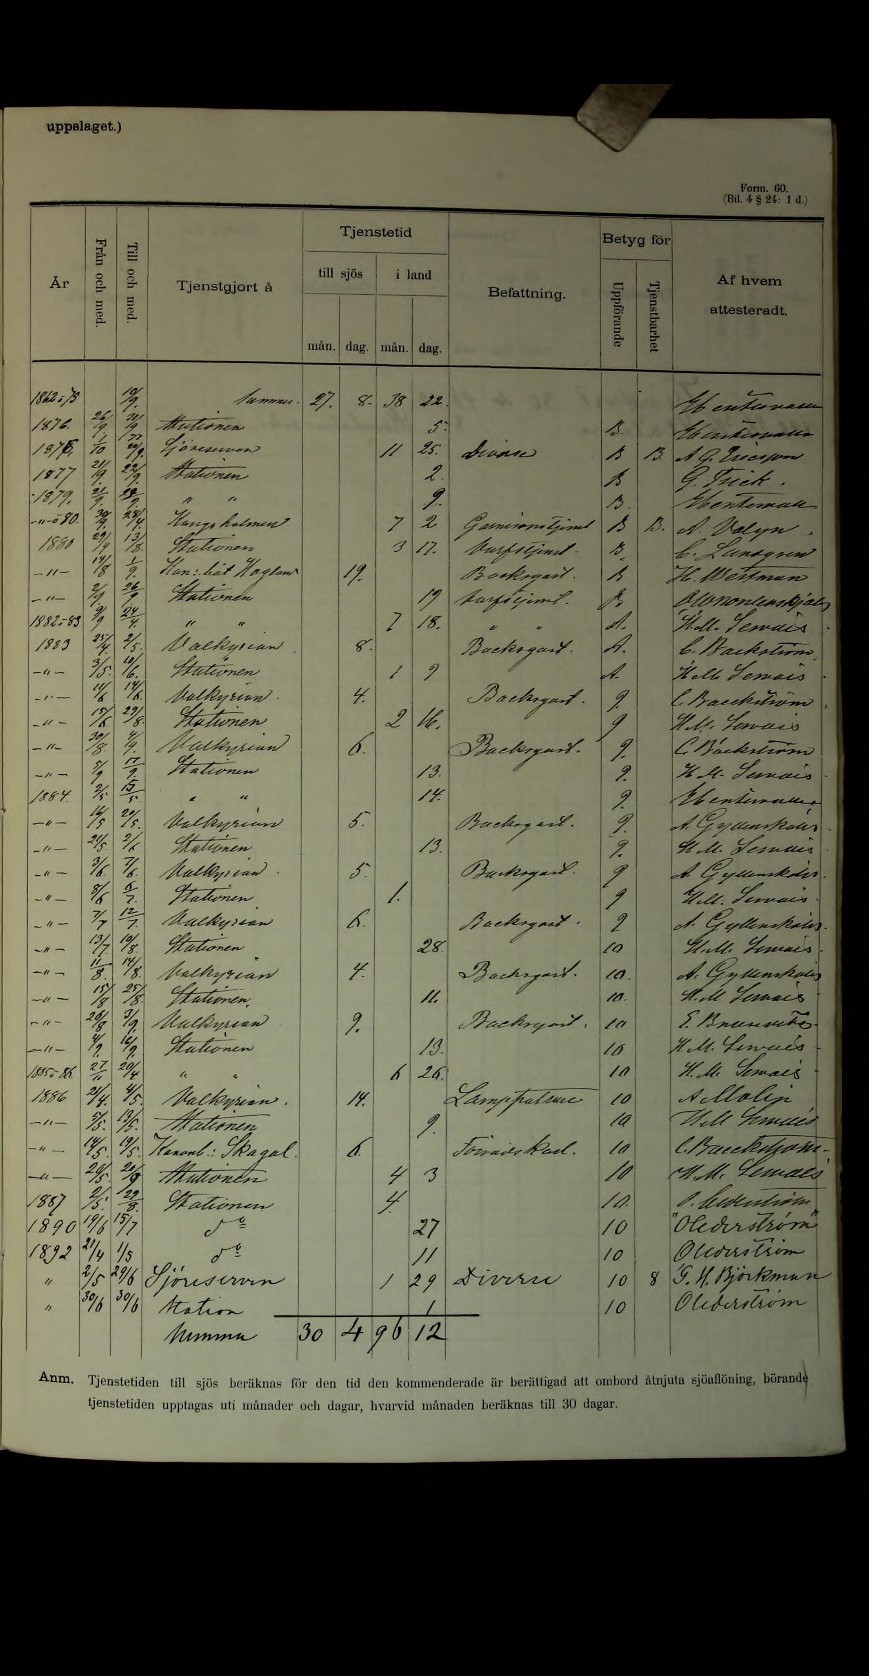 uppslaget.)
Form. 60.
(Bil. 4 § 24: 1 d.)
År Från och med. Till och med. Tjenstgjort å Tjenstetid till sjös i land mån. dag. mån. dag. Befattning. Betyg för Uppförande Tjenstbarhet Af hvem attesteradt.
1862-75 10/9 Summa 27. 8. 38 22.
1876 26/9 Stationen 5. B.
Sjöreserven 11 25. Diverse B B. A G. Ericsson
1877 21/9 22/9 Stationen 2. B G. Frick.
1879. 21/9 " " 9. B.
-"-80. 28/4 Kungsholmen 7 2 B B.
1880 29/4 13/8 Stationen 3 17. B. C. Lundgren
-"- 14/8 1/9 Kan: båt Hogland 19. Backsgast. B H. Westman
-"- 2/9 26/9 Stationen 19 B
1882-83 9/9 24/4 " " 7 18. " " A.
1883 25/4 2/5 Valkyrian 8. Backsgast. A. C. Backström.
-"- 3/5 10/6 Stationen 1 9 A
-"- 11/6 14/6 Valkyrian. 4. Backsgast. 9. C. Baeckström
-"- 15/6 29/8 Stationen 2 16. 9
-"- 30/8 4/9 Valkyrian 6. Backsgast. 9. C. Backström
-"- 5/9 17/9 Stationen 13. 9.
1884. 2/5 15/5 " " 14. 9.
-"- 16/5 20/5 Valkyrian 5. Backsgast. 9.
-"- 21/5 2/6 Stationen 13. 9.
-"- 3/6 7/6 Valkyrian. 5. Backsgast. 9
-"- 8/6 6/7 Stationen 1. 9
-"- 7/7 12/7 Valkyrian 6. Backsgast. 9
-"- 13/7 10/8 Stationen 28. 10
-"- 11/8 14/8 Valkyrian 4. Backsgast. 10.
-"- 15/8 25/8 Stationen. 11. 10.
-"- 26/8 3/9 Valkyrian 9. Backsgast. 10
-"- 4/9 16/9 Stationen 13. 10
1885-86. 27/11 20/4 " " 6 26. 10
1886 21/4 4/5 Valkyrian. 14. Lampputsare 10 A Molin
-"- 5/5 13/5 Stationen 9. 10
-"- 14/5 19/5 Kanonb.: Skagul. 6. 10 C. Baeckström.
-"- 20/5 Stationen 4 3 10
1887 2/5 29/8 Stationen 4. 10.
1890 19/6 15/7 do 27 10 "OCederström"
1892 21/4 1/5 do 11 10 OCederström
" 2/5 29/6 Sjöreserven 1 29 Diverse 10 8 G. H. Björkman
" 30/6 30/6 Station 1 10 OCederström
Summa 30 4 96 12
Anm. Tjenstetiden till sjös beräknas för den tid den kommenderade är berättigad att ombord åtnjuta sjöaflöning, börande
tjenstetiden upptagas uti månader och dagar, hvarvid månaden beräknas till 30 dagar.